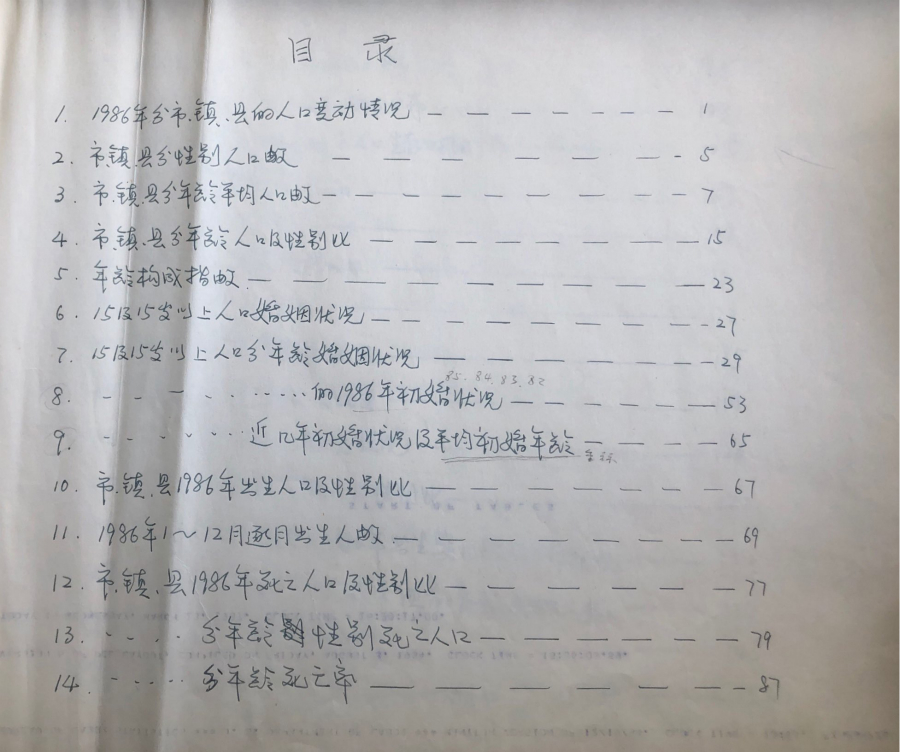 目 录
1. 1986年分市.镇.县的人口变动情况 — — — — — — — 1
2. 市.镇.县分性别人口数 — — — — — — - 5
3. 市.镇.县分年龄平均人口数 - — - — — — — — — 7
4. 市.镇.县分年龄人口及性别比 — — — — — — — — 15
5. 年龄构成指数 — — — — — — — — — — 23
6. 15及15岁以上人口婚姻状况 — — — — — — — - 27
7. 15及15岁以上人口分年龄婚姻状况 — — — — — — — 29
85.84.83.82
8. - - - - · · · · · 的1986年初婚状况 — — — — — — 53
9. - - - - - · · · 近几年初婚状况及平均初婚年龄 — — — — 65
10. 市.镇.县1986年出生人口及性别比 — — — — — — — 67
11. 1986年1～12月逐月出生人数 — — — — — — — — 69
12. 市.镇.县1986年死亡人口及性别比 — — — — — — — 77
13. - - · · 分年龄性别死亡人口 — — — — — — 79
14. - - · · · 分年龄死亡率 — — — — — — — — - 87